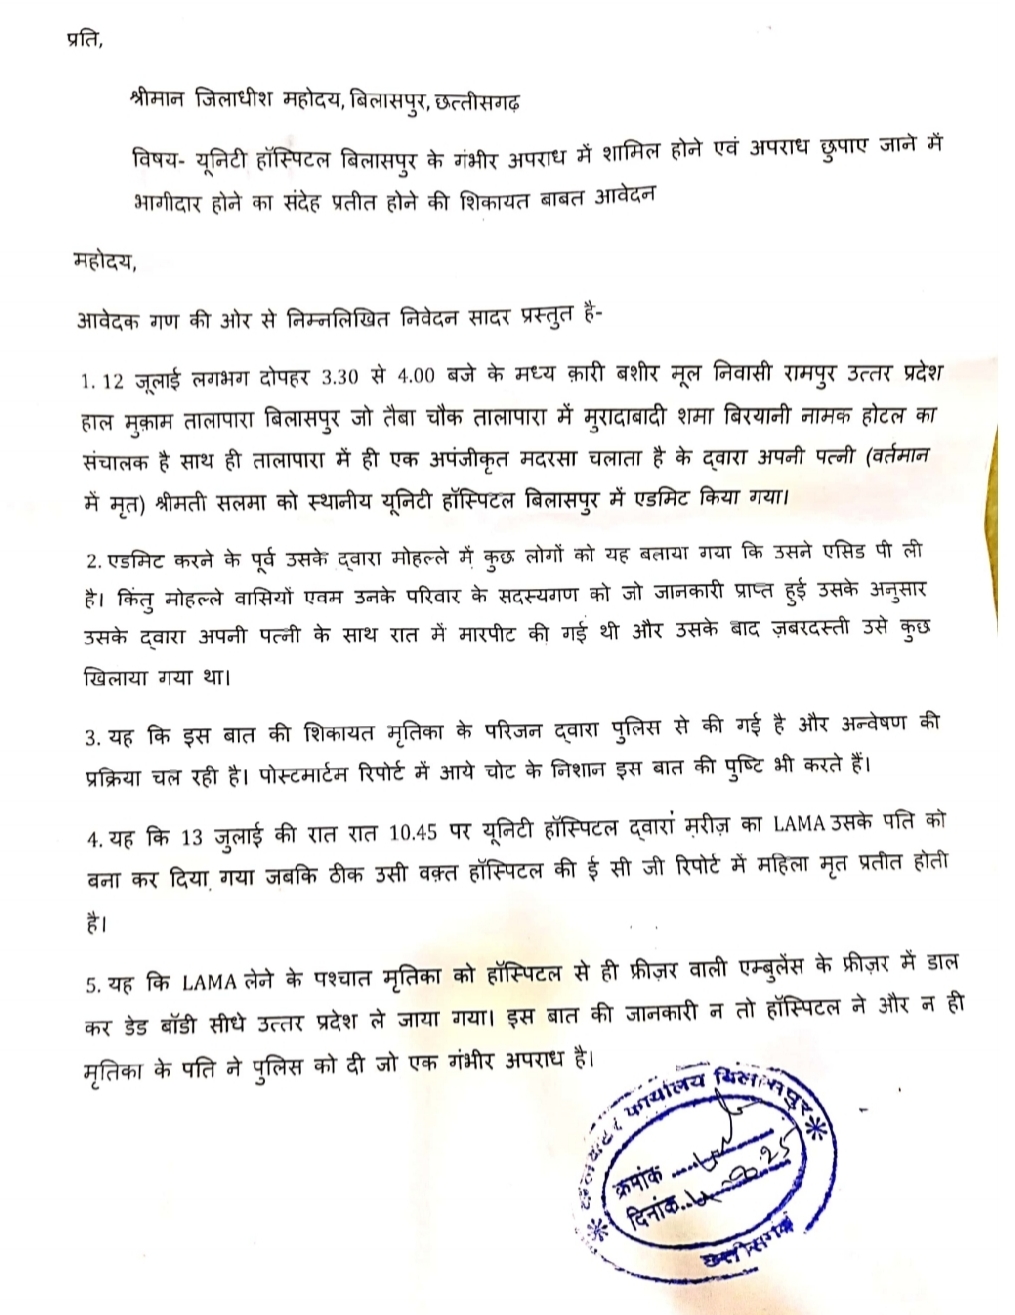 प्रति,
श्रीमान जिलाधीश महोदय, बिलासपुर, छत्तीसगढ़
विषय- यूनिटी हॉस्पिटल बिलासपुर के गंभीर अपराध में शामिल होने एवं अपराध छुपाए जाने में
भागीदार होने का संदेह प्रतीत होने की शिकायत बाबत आवेदन
महोदय,
आवेदक गण की ओर से निम्नलिखित निवेदन सादर प्रस्तुत है-
1. 12 जूलाई लगभग दोपहर 3.30 से 4.00 बजे के मध्य क़ारी बशीर मूल निवासी रामपुर उत्तर प्रदेश
हाल मुक़ाम तालापारा बिलासपुर जो तैबा चौक तालापारा में मुरादाबादी शमा बिरयानी नामक होटल का
संचालक है साथ ही तालापारा में ही एक अपंजीकृत मदरसा चलाता है के द्वारा अपनी पत्नी (वर्तमान
में मृत) श्रीमती सलमा को स्थानीय यूनिटी हॉस्पिटल बिलासपुर में एडमिट किया गया।
2. एडमिट करने के पूर्व उसके द्वारा मोहल्ले में कुछ लोगों को यह बताया गया कि उसने एसिड पी ली
है। किंतु मोहल्ले वासियों एवम उनके परिवार के सदस्यगण को जो जानकारी प्राप्त हुई उसके अनुसार
उसके द्वारा अपनी पत्नी के साथ रात में मारपीट की गई थी और उसके बाद ज़बरदस्ती उसे कुछ
खिलाया गया था।
3. यह कि इस बात की शिकायत मृतिका के परिजन द्वारा पुलिस से की गई है और अन्वेषण की
प्रक्रिया चल रही है। पोस्टमार्टम रिपोर्ट में आये चोट के निशान इस बात की पुष्टि भी करते हैं।
4. यह कि 13 जुलाई की रात रात 10.45 पर यूनिटी हॉस्पिटल द्वारां म़रीज़ का LAMA उसके पति को
बना कर दिया गया जबकि ठीक उसी वक़्त हॉस्पिटल की ई सी जी रिपोर्ट में महिला मृत प्रतीत होती
है।
5. यह कि LAMA लेने के पश्चात मृतिका को हॉस्पिटल से ही फ्रीज़र वाली एम्बुलेंस के फ्रीज़र में डाल
कर डेड बॉडी सीधे उत्तर प्रदेश ले जाया गया। इस बात की जानकारी न तो हॉस्पिटल ने और न ही
मृतिका के पति ने पुलिस को दी जो एक गंभीर अपराध है।
कार्यालय बिलासपुर
क्रमांक
दिनांक
छत्तीसगढ़